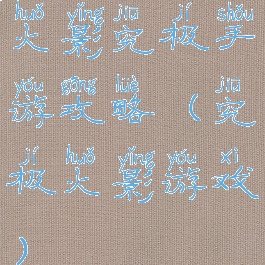 huǒ yǐng jiu jí shǒu
火影究极手
yóu gōng lüè jiu
游攻略（究
jí huǒ yǐng yóu xì
极火影游戏
）